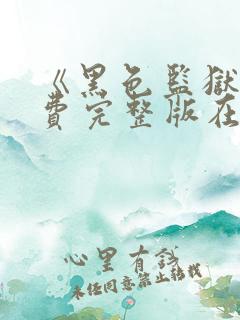 《黑色監獄
費完整版在
心里有談
未经同意禁止转载